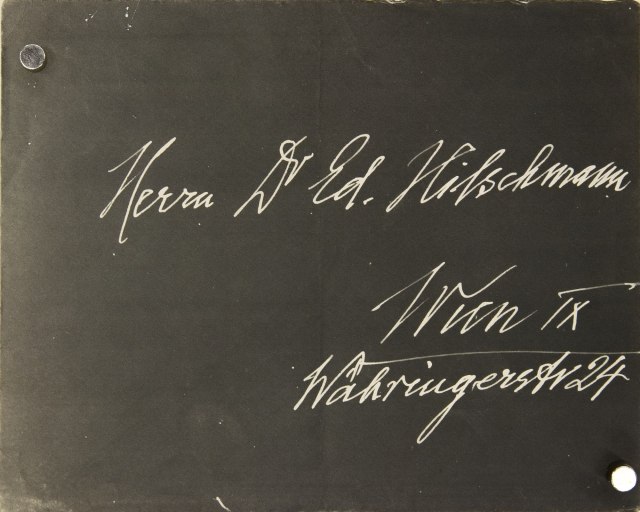 Herrn Dr Ed. Hitschmann
Wien IX
Währingerstr 24